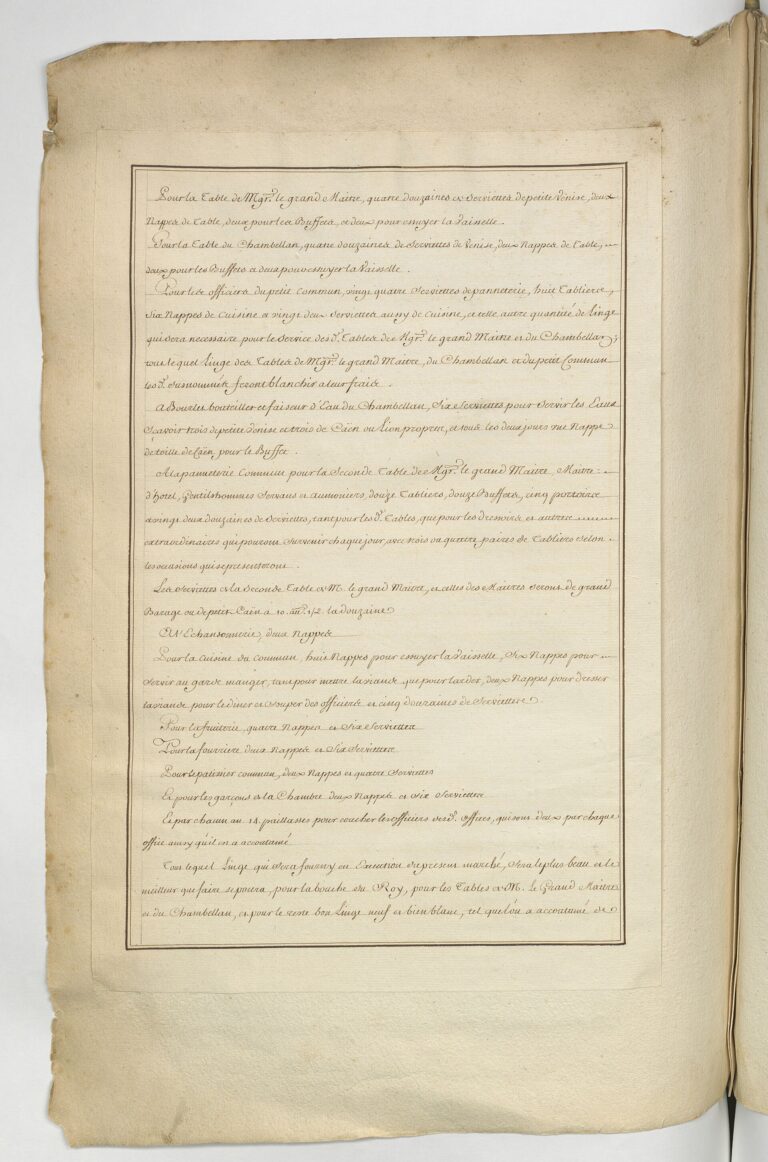 Pour la Table de Mgr. le grand Maitre, quatre douzaines de Serviettes de petite Venise, deux
Nappes de Table, deux pour les Buffets, et deux pour essuyer la Vaisselle.
Pour la Table du Chambellan, quatre douzaines de Serviettes de Venise, deux Nappes de Table,
deux pour les Buffets et deux pour essuyer la Vaisselle.
Pour les officiers du petit Commun, vingt quatre Serviettes de panneterie, huit Tabliers,
Six Nappes de Cuisine et vingt deux Serviettes aussy de Cuisine, et telle autre quantité de linge
qui sera necessaire pour le Service des d. Tables de Mgr. le grand Maitre et du Chambellan;
tous lequel linge des Tables de Mgr. le grand Maitre, du Chambellan et du petit Commun
les d. Susnommés feront blanchir a leur frais.
A Bouteiller et faiseur d'Eau du Chambellan, Six Serviettes pour Servir les Eaux
Sçavoir trois de petite Venise et trois de Caën ou Lion propres, et tous les deux jours une Nappe
de toille de Caën pour le Buffet.
A la panneterie Commun pour la Seconde Table de Mgr. le grand Maitre, Maitre
d'hotel, Gentilshommes Servans et aumoniers, douze Tabliers, douze Buffets, cinq
et vingt deux douzaines de Serviettes, tant pour les d. Tables, que pour les dressoirs et autres
extraordinaires qui pouront Survenir chaque jour, avec trois ou quatre paires de Tabliers Selon
les occasions qui se presenteront.
Les Serviettes de la Seconde Table de M. le grand Maitre, et celles des Maitres Seront de grand
Barage ou de petit Caën a 10. 1/2. la douzaine
A l'Echansonnerie, deux Nappes
Pour la Cuisine du Commun, huit Nappes pour essuyer la Vaisselle, Six Nappes pour
Servir au garde manger, tant pour mettre la viande que pour larder, deux Nappes pour dresser
la viande pour le diner et souper des officiers et cinq douzaines de Serviettes.
Pour la fruiterie, quatre Nappes et Six Serviettes
Pour la fourriere deux Nappes et Six Serviettes
Pour le patissier commun, deux Nappes et quatre Serviettes
Et pour les garçons de la Chambre deux Nappes et six Serviettes
Et par chacun an 14. paillasses pour coucher les officiers des d. Offices, qui sont deux par chaque
office ainsy qu'il en a accoutumé
Tous lequel Linge qui Sera fourny en Execution du present marché, Sera le plus beau et le
meilleur que faire se poura, pour la bouche du Roy, pour les Tables de M. le Grand Maitre
et du Chambellan, et pour le reste bon Linge neuf et bien blanc, tel que l'on a accoutumé de